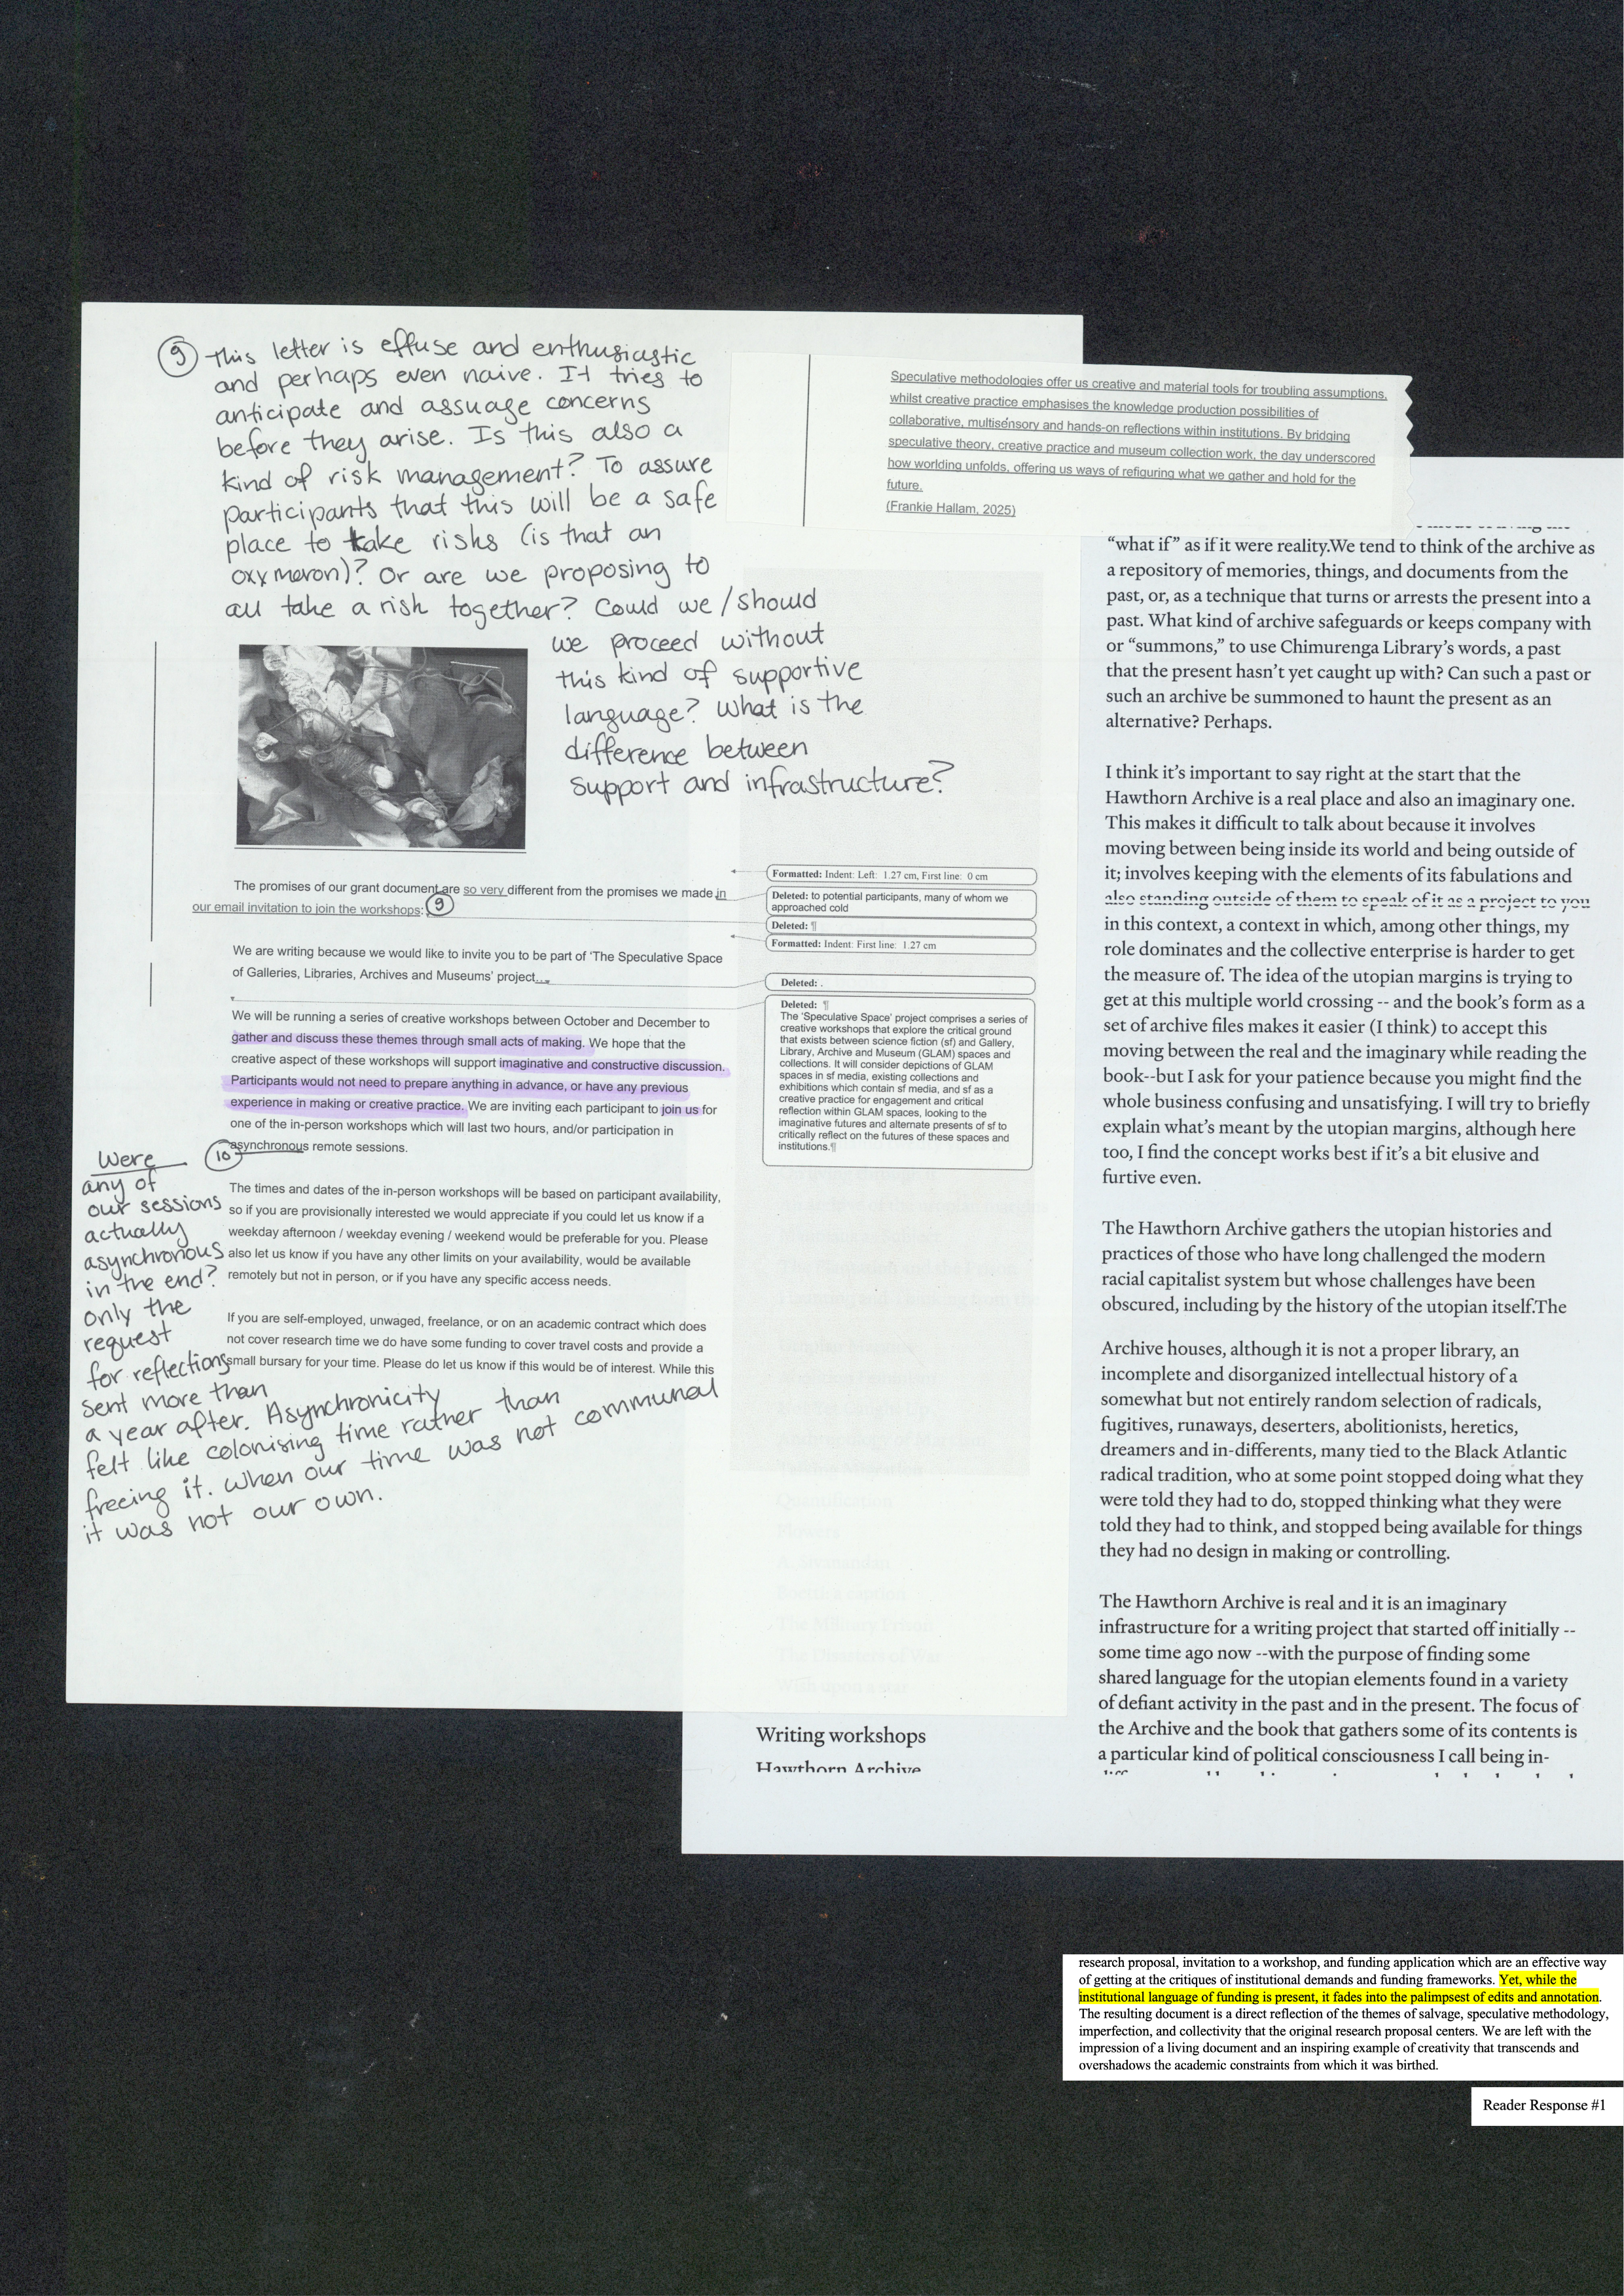 9 This letter is effuse and enthusiastic
and perhaps even naive. It tries to
anticipate and assuage concerns
before they arise. Is this also a
kind of risk management? To assure
participants that this will be a safe
place to take risks (is that an
oxymoron)? Or are we proposing to
all take a risk together? Could we/should
we proceed without
this kind of supportive
language? What is the
difference between
support and infrastructure?
Speculative methodologies offer us creative and material tools for troubling assumptions,
whilst creative practice emphasises the knowledge production possibilities of
collaborative, multisensory and hands-on reflections within institutions. By bridging
speculative theory, creative practice and museum collection work, the day underscored
how worlding unfolds, offering us ways of refiguring what we gather and hold for the
future.
(Frankie Hallam, 2025)
The promises of our grant document are so very different from the promises we made in
our email invitation to join the workshops: 9
We are writing because we would like to invite you to be part of 'The Speculative Space
of Galleries, Libraries, Archives and Museums' project...
We will be running a series of creative workshops between October and December to
gather and discuss these themes through small acts of making. We hope that the
creative aspect of these workshops will support imaginative and constructive discussion.
Participants would not need to prepare anything in advance, or have any previous
experience in making or creative practice. We are inviting each participant to join us for
one of the in-person workshops which will last two hours, and/or participation in
asynchronous remote sessions.
The times and dates of the in-person workshops will be based on participant availability,
so if you are provisionally interested we would appreciate if you could let us know if a
weekday afternoon / weekday evening / weekend would be preferable for you. Please
also let us know if you have any other limits on your availability, would be available
remotely but not in person, or if you have any specific access needs.
If you are self-employed, unwaged, freelance, or on an academic contract which does
not cover research time we do have some funding to cover travel costs and provide a
small bursary for your time. Please do let us know if this would be of interest. While this
Formatted: Indent: Left: 1.27 cm, First line: 0 cm
Deleted: to potential participants, many of whom we
approached cold
Deleted: ¶
Formatted: Indent: First line: 1.27 cm
Deleted: .
Deleted: ¶
The 'Speculative Space' project comprises a series of
creative workshops that explore the critical ground
that exists between science fiction (sf) and Gallery,
Library, Archive and Museum (GLAM) spaces and
collections. It will consider depictions of GLAM
spaces in sf media, existing collections and
exhibitions which contain sf media, and sf as a
creative practice for engagement and critical
reflection within GLAM spaces, looking to the
imaginative futures and alternate presents of sf to
critically reflect on the futures of these spaces and
institutions.¶
10
Were
any of
our sessions
actually
asynchronous
in the end?
only the
request
for reflections
sent more than
a year after. Asynchronicity
felt like colonising time rather than
freeing it. When our time was not communal
it was not our own.
"what if" as if it were reality.We tend to think of the archive as
a repository of memories, things, and documents from the
past, or, as a technique that turns or arrests the present into a
past. What kind of archive safeguards or keeps company with
or "summons," to use Chimurenga Library's words, a past
that the present hasn't yet caught up with? Can such a past or
such an archive be summoned to haunt the present as an
alternative? Perhaps.
I think it's important to say right at the start that the
Hawthorn Archive is a real place and also an imaginary one.
This makes it difficult to talk about because it involves
moving between being inside its world and being outside of
it; involves keeping with the elements of its fabulations and
also standing outside of them to speak of it as a project to you
in this context, a context in which, among other things, my
role dominates and the collective enterprise is harder to get
the measure of. The idea of the utopian margins is trying to
get at this multiple world crossing -- and the book's form as a
set of archive files makes it easier (I think) to accept this
moving between the real and the imaginary while reading the
book--but I ask for your patience because you might find the
whole business confusing and unsatisfying. I will try to briefly
explain what's meant by the utopian margins, although here
too, I find the concept works best if it's a bit elusive and
furtive even.
The Hawthorn Archive gathers the utopian histories and
practices of those who have long challenged the modern
racial capitalist system but whose challenges have been
obscured, including by the history of the utopian itself.The
Archive houses, although it is not a proper library, an
incomplete and disorganized intellectual history of a
somewhat but not entirely random selection of radicals,
fugitives, runaways, deserters, abolitionists, heretics,
dreamers and in-differents, many tied to the Black Atlantic
radical tradition, who at some point stopped doing what they
were told they had to do, stopped thinking what they were
told they had to think, and stopped being available for things
they had no design in making or controlling.
The Hawthorn Archive is real and it is an imaginary
infrastructure for a writing project that started off initially --
some time ago now --with the purpose of finding some
shared language for the utopian elements found in a variety
of defiant activity in the past and in the present. The focus of
the Archive and the book that gathers some of its contents is
a particular kind of political consciousness I call being in-
Quantification
Flowers
The Military Prison
The Disasters of War
Wish upon a star
Writing workshops
Hawthorn Archive
research proposal, invitation to a workshop, and funding application which are an effective way
of getting at the critiques of institutional demands and funding frameworks. Yet, while the
institutional language of funding is present, it fades into the palimpsest of edits and annotation.
The resulting document is a direct reflection of the themes of salvage, speculative methodology,
imperfection, and collectivity that the original research proposal centers. We are left with the
impression of a living document and an inspiring example of creativity that transcends and
overshadows the academic constraints from which it was birthed.
Reader Response #1